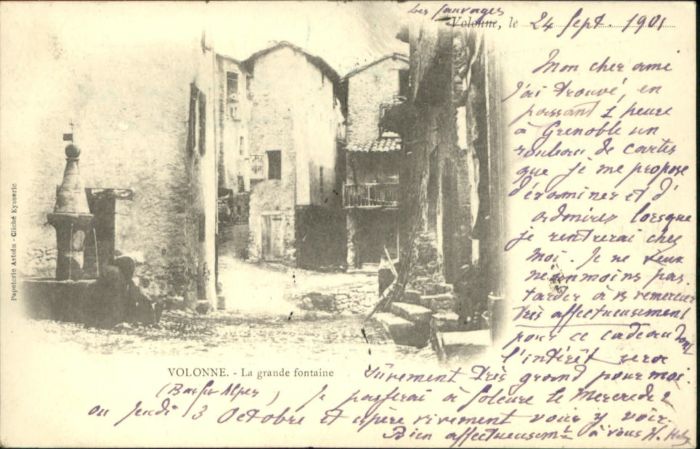 Les Sauvages
Volonne, le 24 Sept. 1901
Mon cher ami
j'ai trouvé, en
passant 1 heure
à Grenoble un
rouleau de cartes
que je me propose
d'examiner et d'
admirer lorsque
je rentrerai chez
moi. Je ne veux
néanmoins pas
tarder à vs remercier
très affectueusement
pour ce cadeau dont
l'intérêt sera
sûrement très grand pour moi.
Papeterie - Cliché Eysseric
VOLONNE. - La grande fontaine
(Basses Alpes) Je passerai à Soleure le Mercredi 2
ou Jeudi 3 Octobre et espère vivement vous y voir.
Bien affectueusemt à vous H.